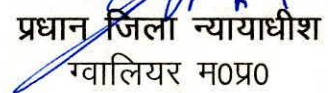 प्रधान जिला न्यायाधीश
ग्वालियर म0प्र0